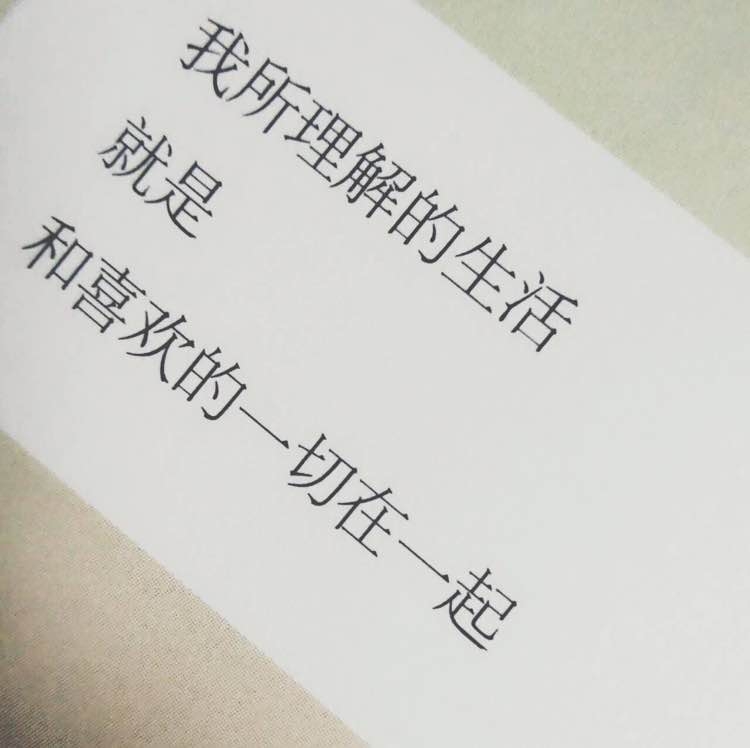 我所理解的生活
就是
和喜欢的一切在一起